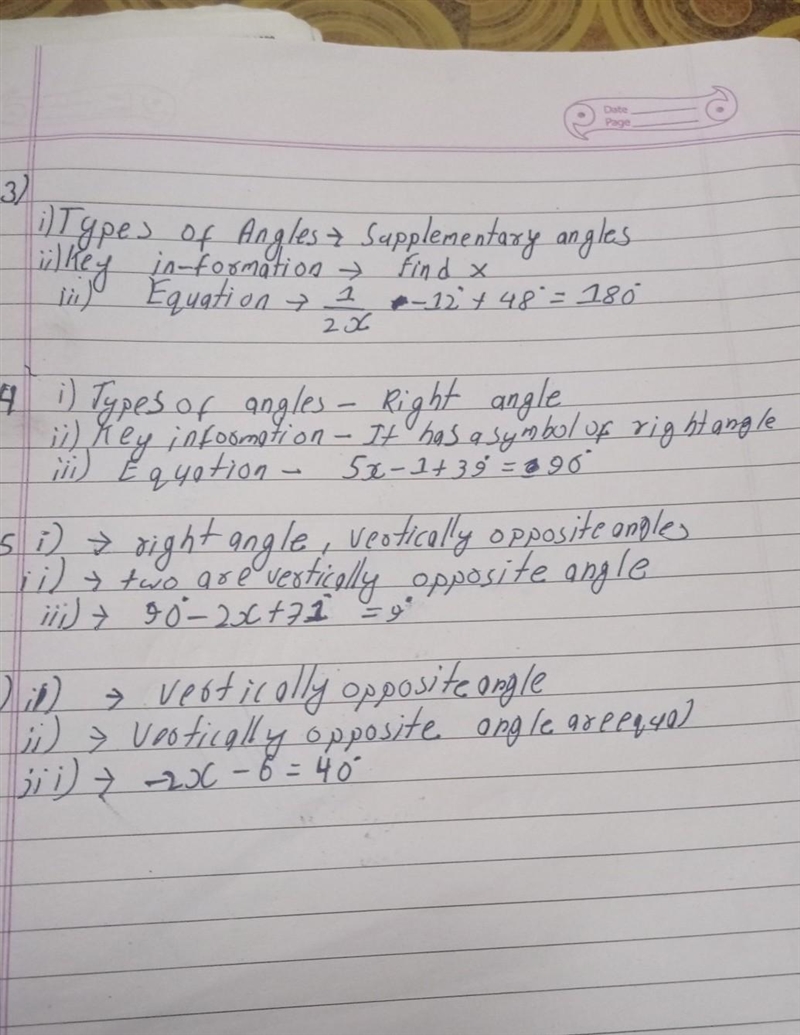 Date
Page
3)
i) Types of Angles → Supplementary angles
ii) Key in-formation → Find x
iii) Equation → 1/2x -12° + 48° = 180°
4 i) Types of angles - Right angle
ii) Key information - It has a symbol of right angle
iii) Equation - 5x - 1 + 39° = 90°
5 i) → right angle, vertically opposite angles
ii) → two are vertically opposite angle
iii) → 90° - 2x + 71° = 9°
) i) → vertically opposite angle
ii) → Vertically opposite angle are equal
iii) → -2x - 6 = 40°